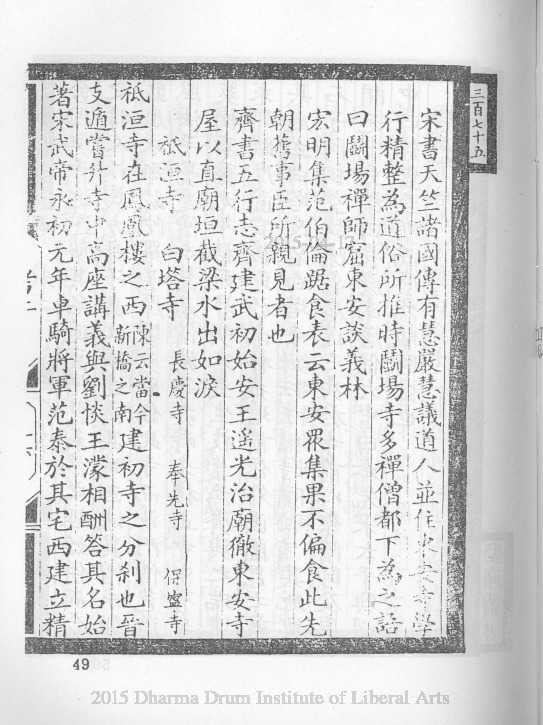 三百七十五
宋書天竺諸國傳有慧嚴慧議道人並住東安寺學
行精整為道俗所推時鬭場寺多禪僧都下為之語
曰鬭場禪師窟東安談義林
宏明集范伯倫踞食表云東安眾集果不偏食此先
朝舊事臣所親見者也
齊書五行志齊建武初始安王遙光治廟徹東安寺
屋以直廟垣截梁水出如淚
祇洹寺 白塔寺 長慶寺 奉先寺 保寧寺
祇洹寺在鳳凰樓之西陳云當今新橋之南建初寺之分刹也晉
支遁嘗升寺中高座講義與劉惔王濛相酬答其名始
著宋武帝永初元年車騎將軍范泰於其宅西建立精
49
2015 Dharma Drum Institute of Liberal Arts